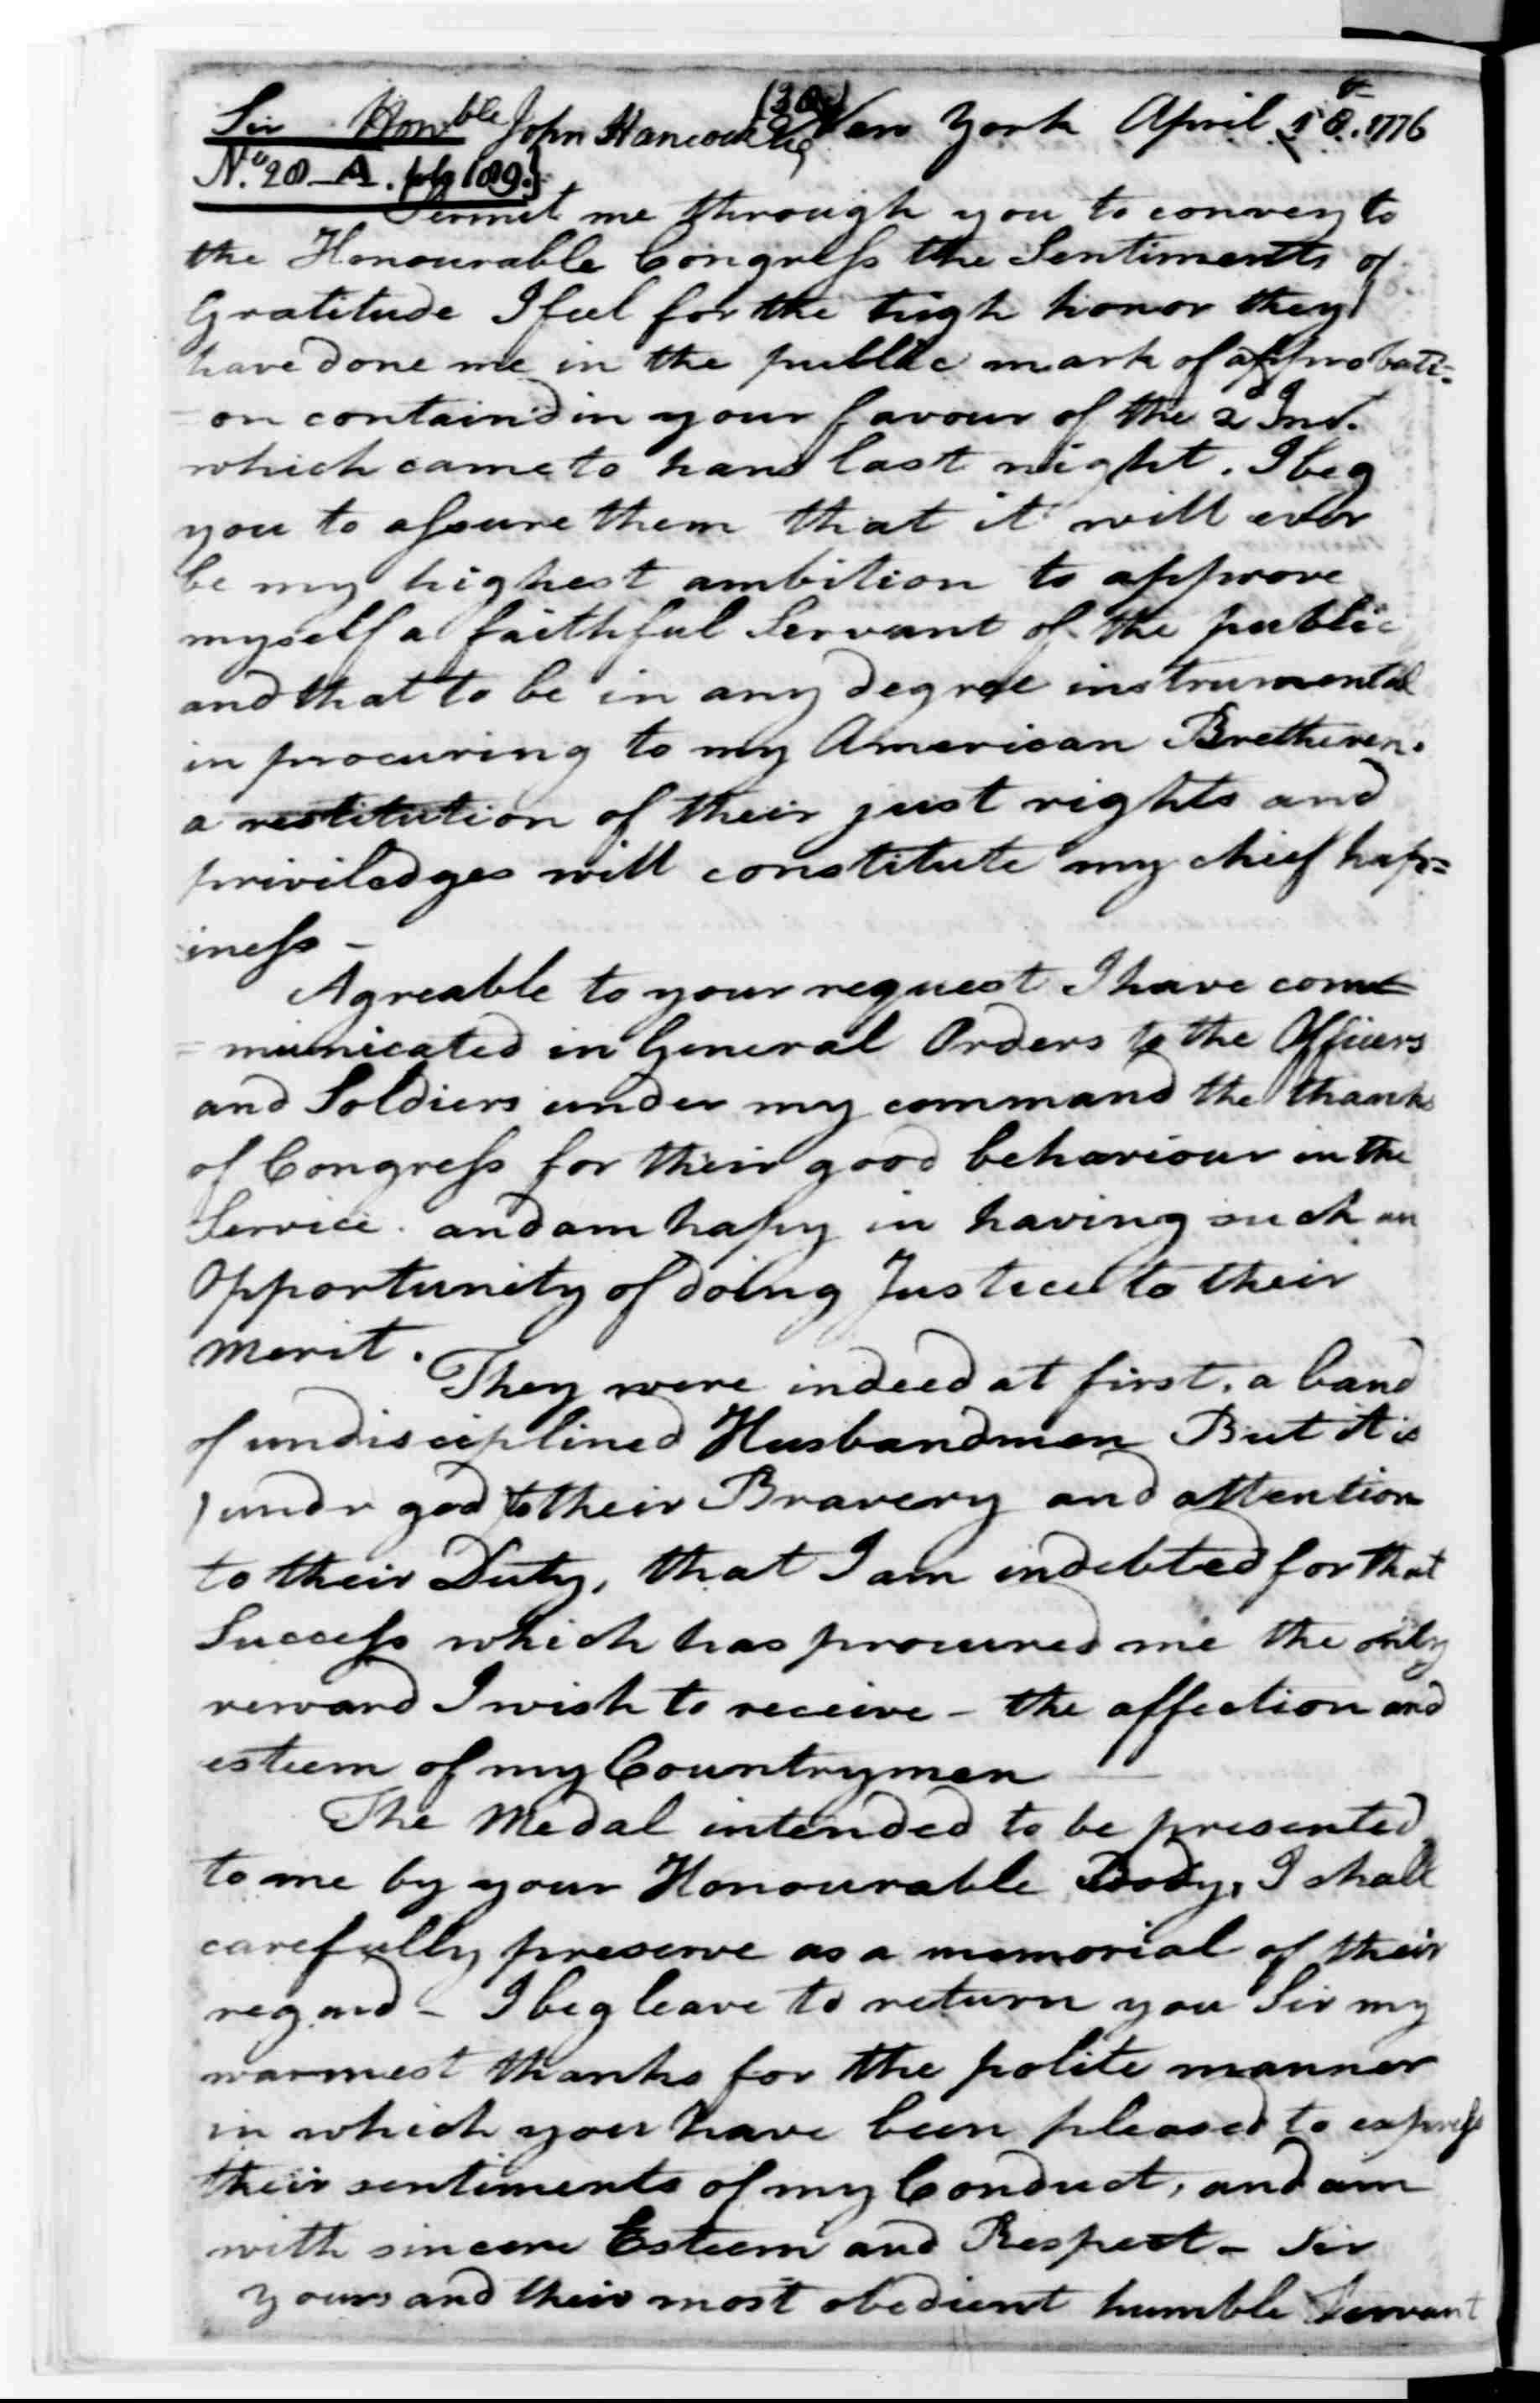 Sir Honble John Hancock Esq New York April 18th. 1776
No. 20 A. pag 189.
Permit me through you to convey to
the Honourable Congress the Sentiments of
Gratitude I feel for the high honor they
have done me in the public mark of approbati=
=on contain'd in your favour of the 2d Inst.
which came to hand last night. I beg
you to assure them that it will ever
be my highest ambition to approve
myself a faithful Servant of the public
and that to be in any degree instrumental
in procuring to my American Bretheren.
a restitution of their just rights and
priviledges will constitute my chief hap=
iness –
Agreable to your request I have com=
=municated in General Orders to the Officers
and Soldiers under my command the thanks
of Congress for their good behaviour in the
Service. and am hapy in having such an
Opportunity of doing Justice to their
merit.
They were indeed at first, a band
of undisciplined Husbandmen But it is
(undr god) to their Bravery and attention
to their Duty, that I am indebted for that
Success which has procured me the only
reward I wish to receive – the affection and
esteem of my Countrymen —
The Medal intended to be presented
to me by your Honourable Body, I shall
carefully preserve as a memorial of their
regard – I beg leave to return you Sir my
warmest thanks for the polite manner
in which you have been pleased to express
their sentiments of my Conduct, and am
with sincere Esteem and Respect – Sir
yours and their most obedient humble Servant